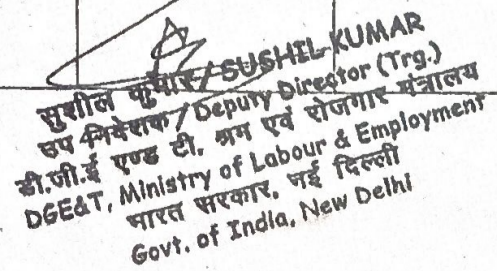 सुशील कुमार/SUSHIL KUMAR
उप निदेशक/Deputy Director (Trg.)
डी.जी.ई एण्ड टी. श्रम एवं रोजगार मंत्रालय
DGE&T, Ministry of Labour & Employment
भारत सरकार, नई दिल्ली
Govt. of India, New Delhi